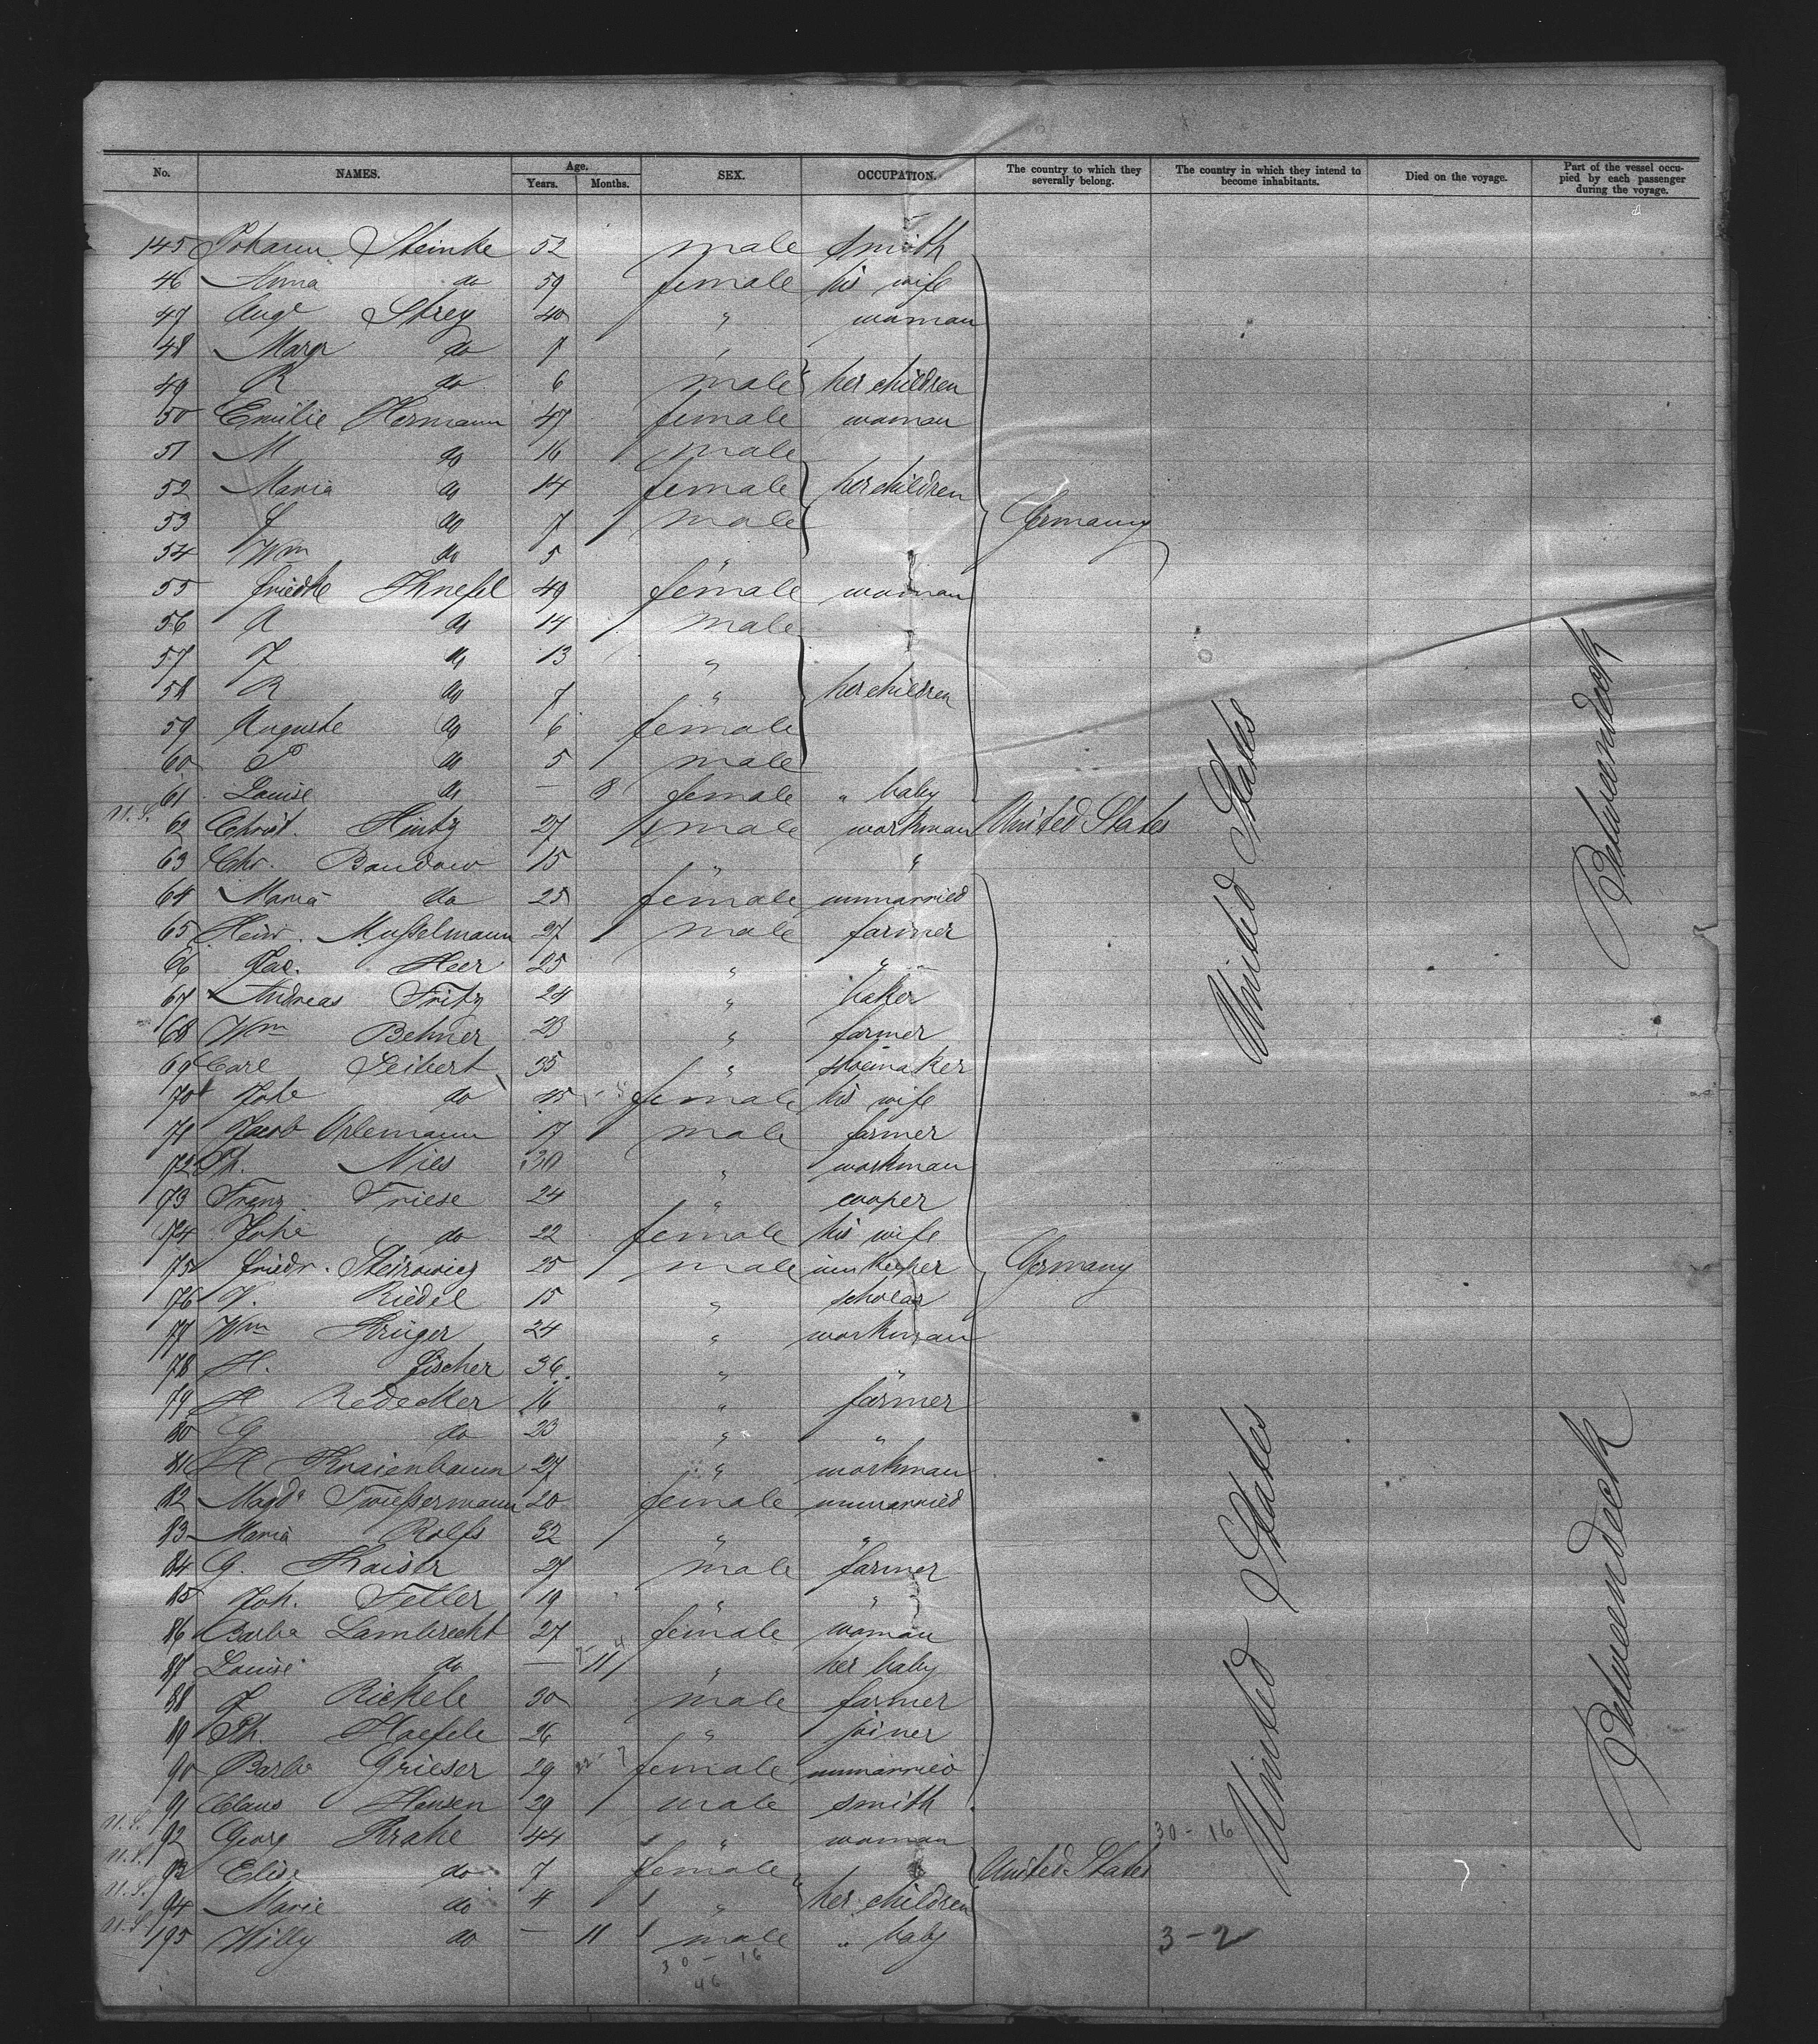 No. NAMES. Age. Years. Months. SEX. OCCUPATION. The country to which they severally belong. The country in which they intend to become inhabitants. Died on the voyage. Part of the vessel occupied by each passenger during the voyage.
145 Johann Steinke 52 male smith
46 Anna do 59 female his wife
47 Auge Strey 40 " woman
48 Margr do 7 "
49 R do 6 male her children
50 Emilie Hermann 47 female woman
51 M do 16 male
52 Maria do 14 female her children
53 do 7 male Germany
54 Wm do 5 "
55 Friedke Knefel 49 female woman
56 A do 14 male
57 J do 13 "
58 R do 7 " her children
59 Auguste do 6 female
60 P do 5 male
61 Louise do — 8 female " baby
U.S. 62 Christ. Hintz 27 male workman United States
63 Chr. Bandow 15 " "
64 Maria do 25 female unmarried
65 Heinr. Mußelmann 27 male farmer
66 Jac. Heer 25 " "
67 Andreas Fritz 24 " baker
68 Wm Behner 23 " farmer
69 Carl Seibert 55 " shoemaker
70 do 45 female his wife
71 Jacob Orlemann 17 male farmer
72 Ph. Nies 30 " workman
73 Franz Friese 24 " cooper
74 Johe do 22 female his wife
75 Friedr. 25 male innkeeper Germany
76 V. Riedel 15 " scholar
77 Wm Krüger 24 " workman
78 H. Fischer 36 " "
79 H Redecker 16 " farmer
80 G do 23 " "
81 H Knaienbaum 27 " workman
82 Magda Twießermann 20 female unmarried
83 Maria Rolfs 32 " "
84 G. Kaiser 27 male farmer
85 Joh. Feller 19 " "
86 Barba Lambrecht 27 female woman
87 Louise do — 11 " her baby
88 J Rickele 30 male farmer
89 Ph. Haefele 26 " joiner
90 Barba Grieser 29 female unmarried
91 Claus Hansen 29 male smith
U.S. 92 Georg Krake 44 " woman 30-16
U.S. 93 Elise do 7 female United States
U.S. 94 Marie do 4 " her children
U.S. 195 Willy do — 11 male " baby 3-2
30 - 16
46
United States
United States
Betweendeck
Betweendeck